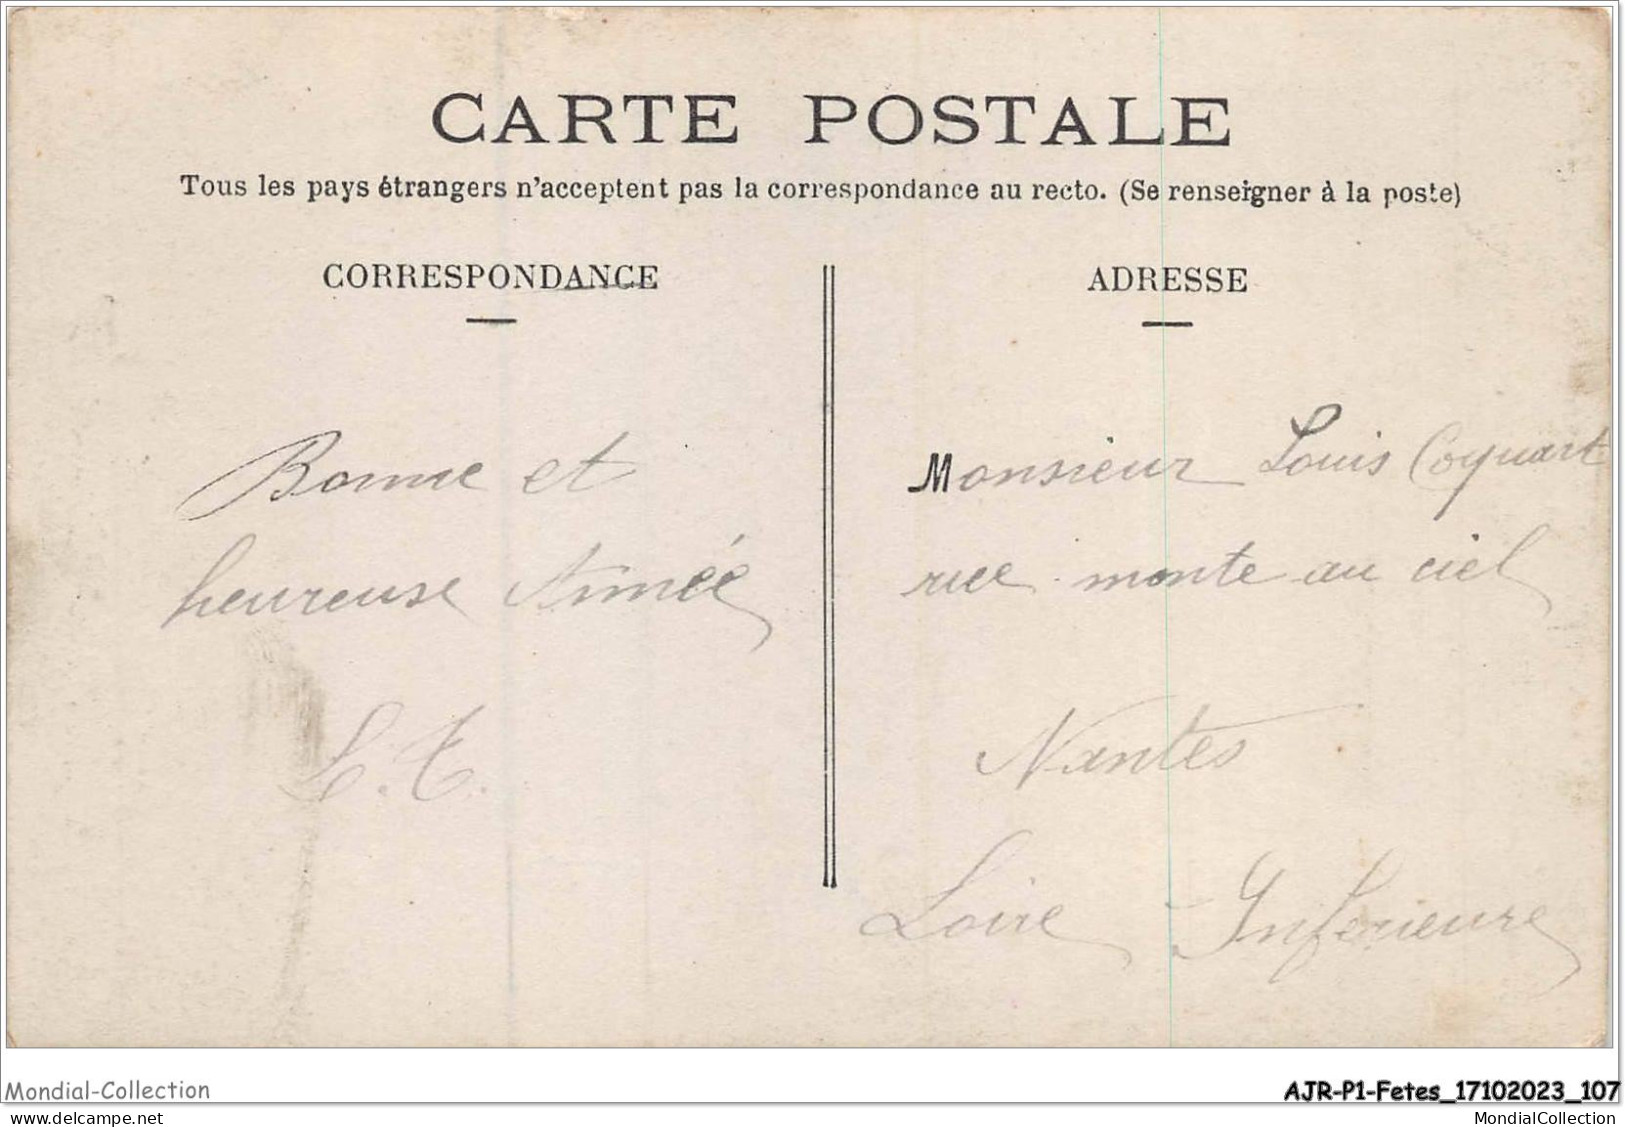 CARTE POSTALE
Tous les pays étrangers n'acceptent pas la correspondance au recto. (Se renseigner à la poste)
CORRESPONDANCE
Bonne et
heureuse Année
L. T.
ADRESSE
Monsieur Louis Coquart
rue monte au ciel
Nantes
Loire - Inferieure
Mondial-Collection
AJR-P1-Fetes_17102023_107
www.delcampe.net
MondialCollection